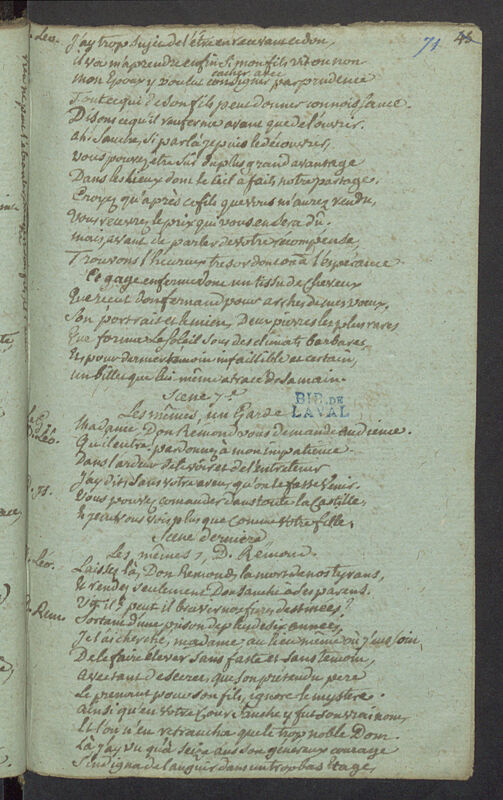 71 45
Leo. J'ay trop sujet de l'être en recevant ce don,
Il va m'aprendre enfin si mon fils vit ou non
cacher avec
mon Epoux y voulut consigner par prudence
Tout ce qui de son fils peut donner connoissance.
Disons ce qu'il renferme avant que de l'ouvrir.
Ah! Sanche, si par là je puis le découvrir,
vous pouvez être sûr du plus grand avantage
Dans les lieux dont le Ciel a fait notre partage.
Croyez qu'après ce fils que vous m'aurez rendu,
vous recevrez le prix qui vous en sera dû.
mais avant de parler de votre récompense,
Trouvons l'heureux tresor dont on a l'espérance
Ce gage enferme donc un tissu de cheveux
Que reçut don fernand pour arches de mes voeux,
Son portrait et le mien, Deux pierres les plus rares
Que forme le soleil sous des climats barbares
Et, pour dernier témoin infaillible et certain,
un billet que lui même a tracé de sa main.
Scene 7e
Les mêmes, un Garde
BIB. DE LAVAL
Madame Don Rémond vous demande audience.
D. Leo. Qu'il entre. pardonnez à mon impatience
Dans l'ardeur de le voir et de l'entretenir
J'ay dit sans votre aveu, qu'on le fasse venir.
Vous pouvez comander dans toute la Castille,
Et je n'y vous suis plus que comme votre fille.
Scene derniere
Les mêmes, D. Remond
Leo. Laissez là, Don Remond, la mort de nos tyrans,
Et rendez seulement Don Sanche à ses parens.
Vit-il? peut il braver nos fieres destinées?
D. Rem. Sortant d'une prison de plus de six années,
Je l'ai cherché, madame au lieu même où j'eus soin
De le faire élever sans faste et sans temoin,
Avec tant de secret, que son prétendu pere
Le prenant pour son fils, ignore le mystere.
Ainsi qu'en votre Cour Sanche y fut son vrai nom,
Et l'on n'en retrancha que le trop noble Dom.
Là j'ay vu qu'à seize ans son genereux courage
S'indigna de languir dans un trop bas Etage,